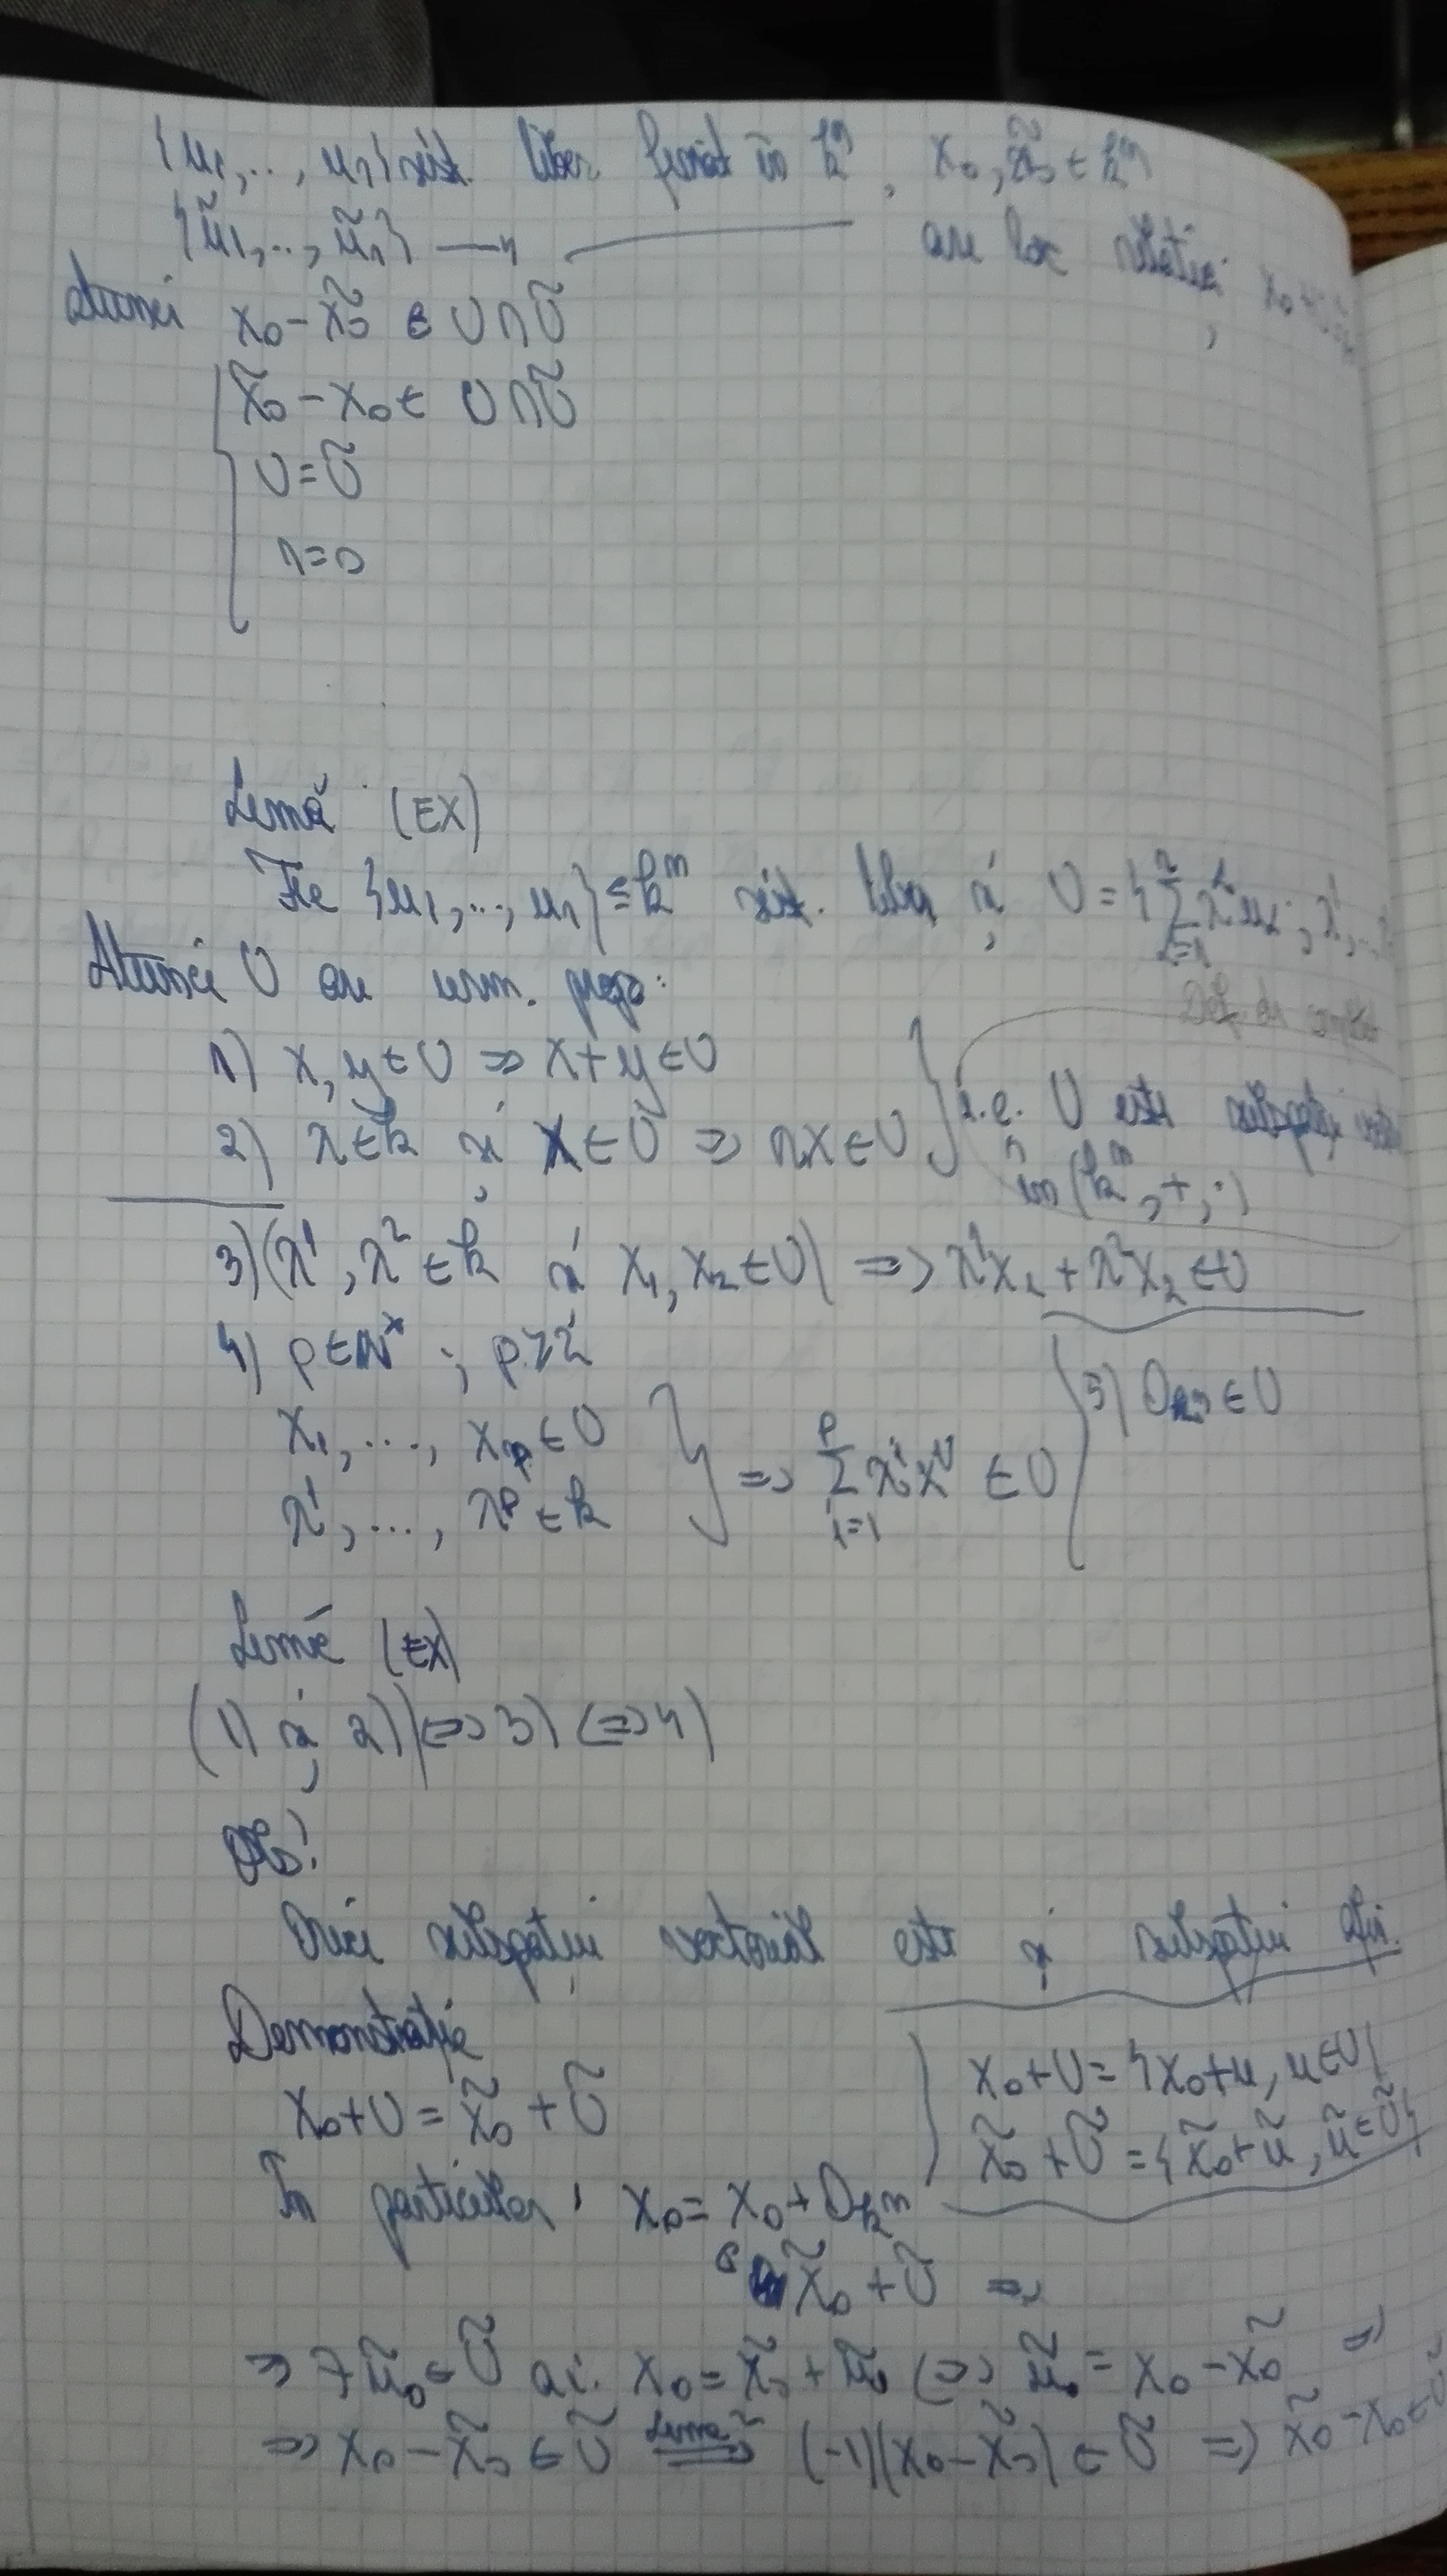 {u₁,.., uₙ} sist. liber fixat în kⁿ, x₀, x̃₀ ∈ kⁿ
{ũ₁,.., ũₙ} —"— are loc relația
Atunci x₀ - x̃₀ ∈ U∩Ũ
x̃₀ - x₀ ∈ U∩Ũ
U = Ũ
r = s
Lemă (EX)
Fie {u₁,..., uₙ} ⊆ kⁿ sist. liber și U = {Σ λⁱuᵢ ; λ¹,..
Atunci U are urm. prop:
1) x, y ∈ U ⇒ x+y ∈ U
2) λ ∈ k și x ∈ U ⇒ λx ∈ U } i.e. U este subspațiu
în (kⁿ, +, ·)
3) (λ¹, λ² ∈ k și x₁, x₂ ∈ U) ⇒ λ¹x₁ + λ²x₂ ∈ U
4) p ∈ N* ; p ≥ 2
5) 0ₖₙ ∈ U
x₁, ...., xₚ ∈ U
λ¹, ..., λᵖ ∈ k } ⇒ Σᵢ₌₁ᵖ λⁱxⁱ ∈ U
Lemă (EX)
(1) și 2)) ⇔ 3) ⇔ 4)
Obs!
Orice subspațiu vectorial este și subspațiu afin.
Demonstrație
x₀+U = {x₀+u, u∈U}
x₀+U = x̃₀ + Ũ
x̃₀ + Ũ = {x̃₀+ũ, ũ∈Ũ}
În particular, x₀ = x₀ + 0ₖₙ
∈ x̃₀ + Ũ ⇒
⇒ ∃ ũ₀ ∈ Ũ aî. x₀ = x̃₀ + ũ₀ ⇔ ũ₀ = x₀ - x̃₀ ⇒
⇒ x₀ - x̃₀ ∈ Ũ ⇒ Lema 2 (-1)(x₀ - x̃₀) ∈ Ũ ⇒ x̃₀ - x₀ ∈ Ũ